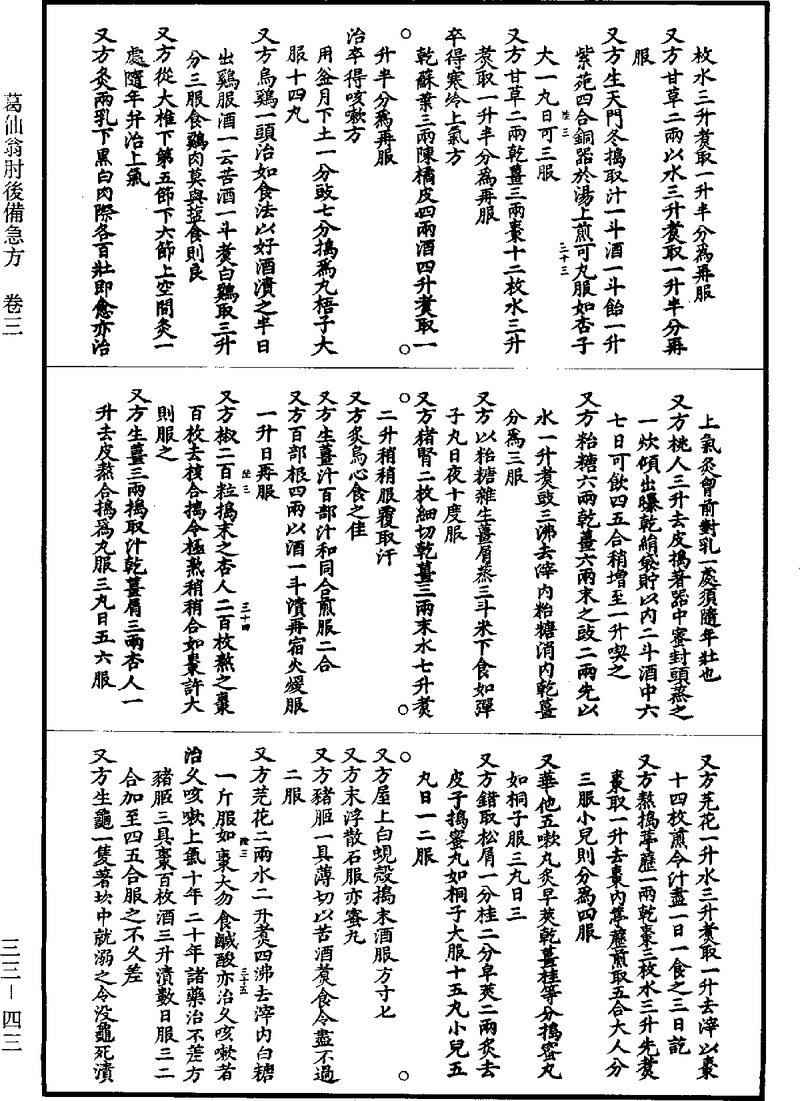 葛仙翁肘後備急方　卷三
枚水三升煑取一升半分爲再服
又方甘草二兩以水三升煑取一升半分再
服
又方生天門冬搗取汁一斗酒一斗飴一升
紫菀四合銅器於湯上煎可丸服如杏子
陸三
三十三
大一丸日可三服
又方甘草二兩乾薑三兩棗十二枚水三升
煑取一升半分爲再服
卒得寒冷上氣方
乾蘇葉三兩陳橘皮四兩酒四升煑取一
升半分爲再服
治卒得咳嗽方
用釡月下土一分豉七分搗爲丸梧子大
服十四丸
又方烏鷄一頭治如食法以好酒漬之半日
出鷄服酒一云苦酒一斗煑白鷄取三升
分三服食鷄肉莫與鹽食則良
又方從大椎下第五節下六節上空間灸一
處隨年并治上氣
又方灸兩乳下黒白肉際各百壯即愈亦治
上氣灸胷前對乳一處須隨年壯也
又方桃人三升去皮搗著器中密封頭蒸之
一炊傾出曝乾絹袋貯以内二斗酒中六
七日可飲四五合稍增至一升喫之
又方粘糖六兩乾薑六兩末之豉二兩先以
水一升煑豉三沸去滓内粘糖消内乾薑
分爲三服
又方以粘糖雜生薑屑蒸三斗米下食如彈
子丸日夜十度服
又方猪腎二枚細切乾薑三兩末水七升煑
二升稍稍服覆取汗
又方炙烏心食之佳
又方生薑汁百部汁和同合煎服二合
又方百部根四兩以酒一斗漬再宿火煖服
一升日再服
陸三
三十四
又方椒二百粒搗末之杏人二百枚熬之棗
百枚去核合搗令極熟稍稍合如棗許大
則服之
又方生薑三兩搗取汁乾薑屑三兩杏人一
升去皮熬合搗爲丸服三丸日五六服
又方芫花一升水三升煑取一升去滓以棗
十四枚煎令汁盡一日一食之三日訖
又方熬搗葶藶一兩乾棗三枚水三升先煑
棗取一升去棗内葶藶煎取五合大人分
三服小兒則分爲四服
又華佗五嗽丸炙早莢乾薑桂等分搗蜜丸
如桐子服三丸日三
又方錯取松屑一分桂二分皁莢二兩炙去
皮子搗蜜丸如桐子大服十五丸小兒五
丸日一二服
又方屋上白蜆殼搗末酒服方寸匕
又方末浮散石服亦蜜丸
又方猪胵一具薄切以苦酒煑食令盡不過
二服
又方芫花二兩水二升煑四沸去滓内白糖
一斤服如棗大勿食鹹酸亦治久咳嗽者
陸三
三十五
治久咳嗽上氣十年二十年諸藥治不差方
猪胵三具棗百枚酒三升漬數日服三二
合加至四五合服之不久差
又方生龜一隻著坎中就溺之令没龜死漬
三三－四三